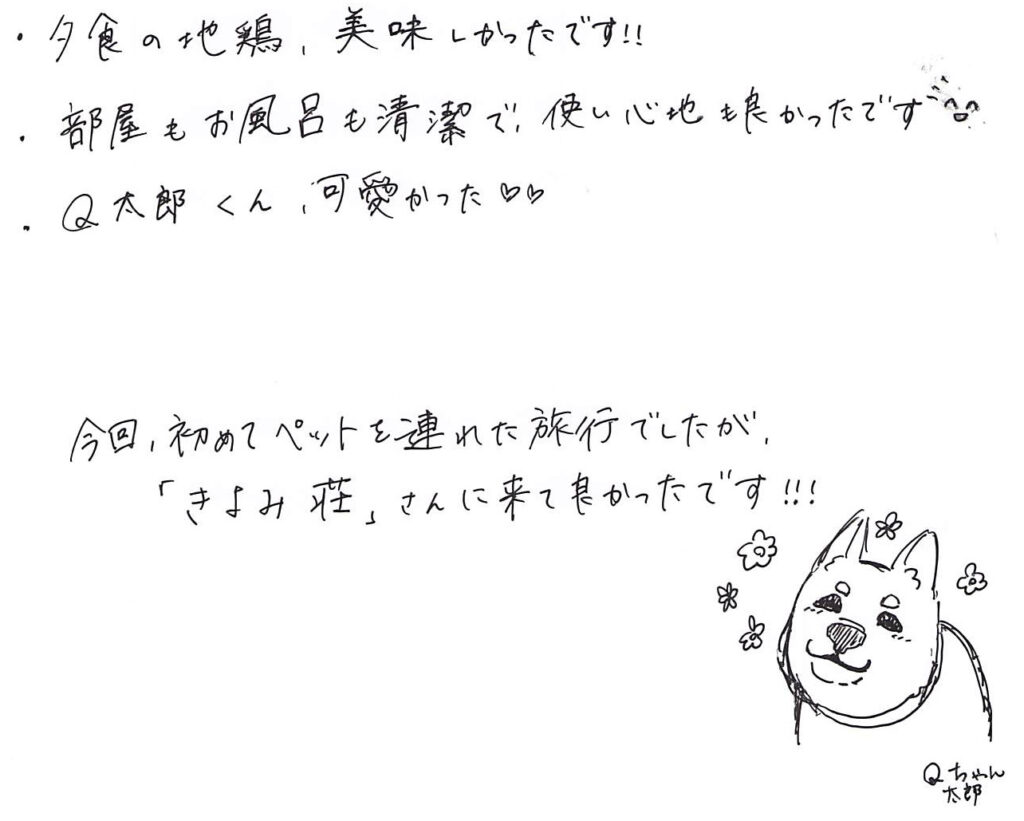 ・夕食の地鶏、美味しかったです!!
・部屋もお風呂も清潔で、使い心地も良かったです
・Q太郎くん、可愛かった♡♡
今回、初めてペットを連れた旅行でしたが、
「きよみ荘」さんに来て良かったです!!!
Qちゃん
太郎